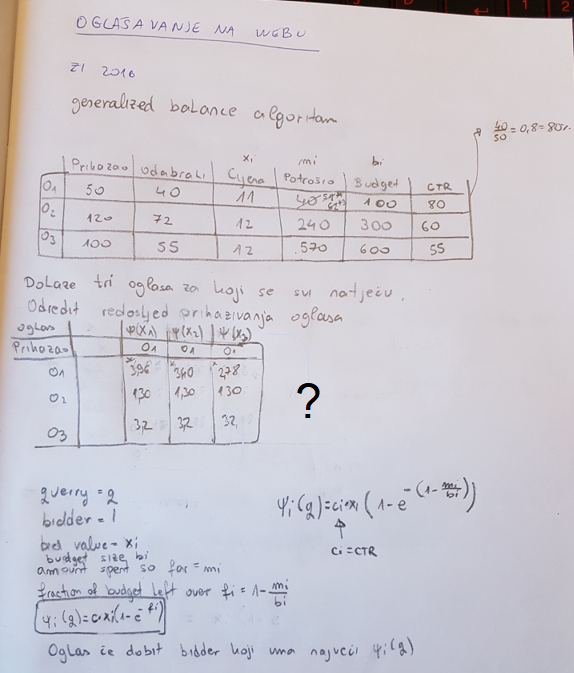 OGLAŠAVANJE NA WEBU
ZI 2016
generalized balance algoritam
40/50 = 0,8 = 80%
xi mi bi
Prikazao Odabrali Cijena Potrošio Budget CTR
O1 50 40 11 40 100 80
O2 120 72 12 240 300 60
O3 100 55 12 570 600 55
Dolaze tri oglasa za koji se svi natječu.
Odredit redosljed prikazivanja oglasa
oglas ψ(x1) ψ(x2) ψ(x3)
Prikazao O1 O1 O1
O1 3,96 3,40 2,78
O2 1,30 1,30 1,30
O3 32 32 32
?
querry = q
bidder = i
bid value = xi
budget size bi
amount spent so far = mi
fraction of budget left over fi = 1 - mi/bi
ψi(q) = c·xi(1-e^-fi)
ψi(q) = ci·xi (1 - e^-(1-mi/bi))
ci = CTR
Oglas će dobit bidder koji ima najveći ψi(q)